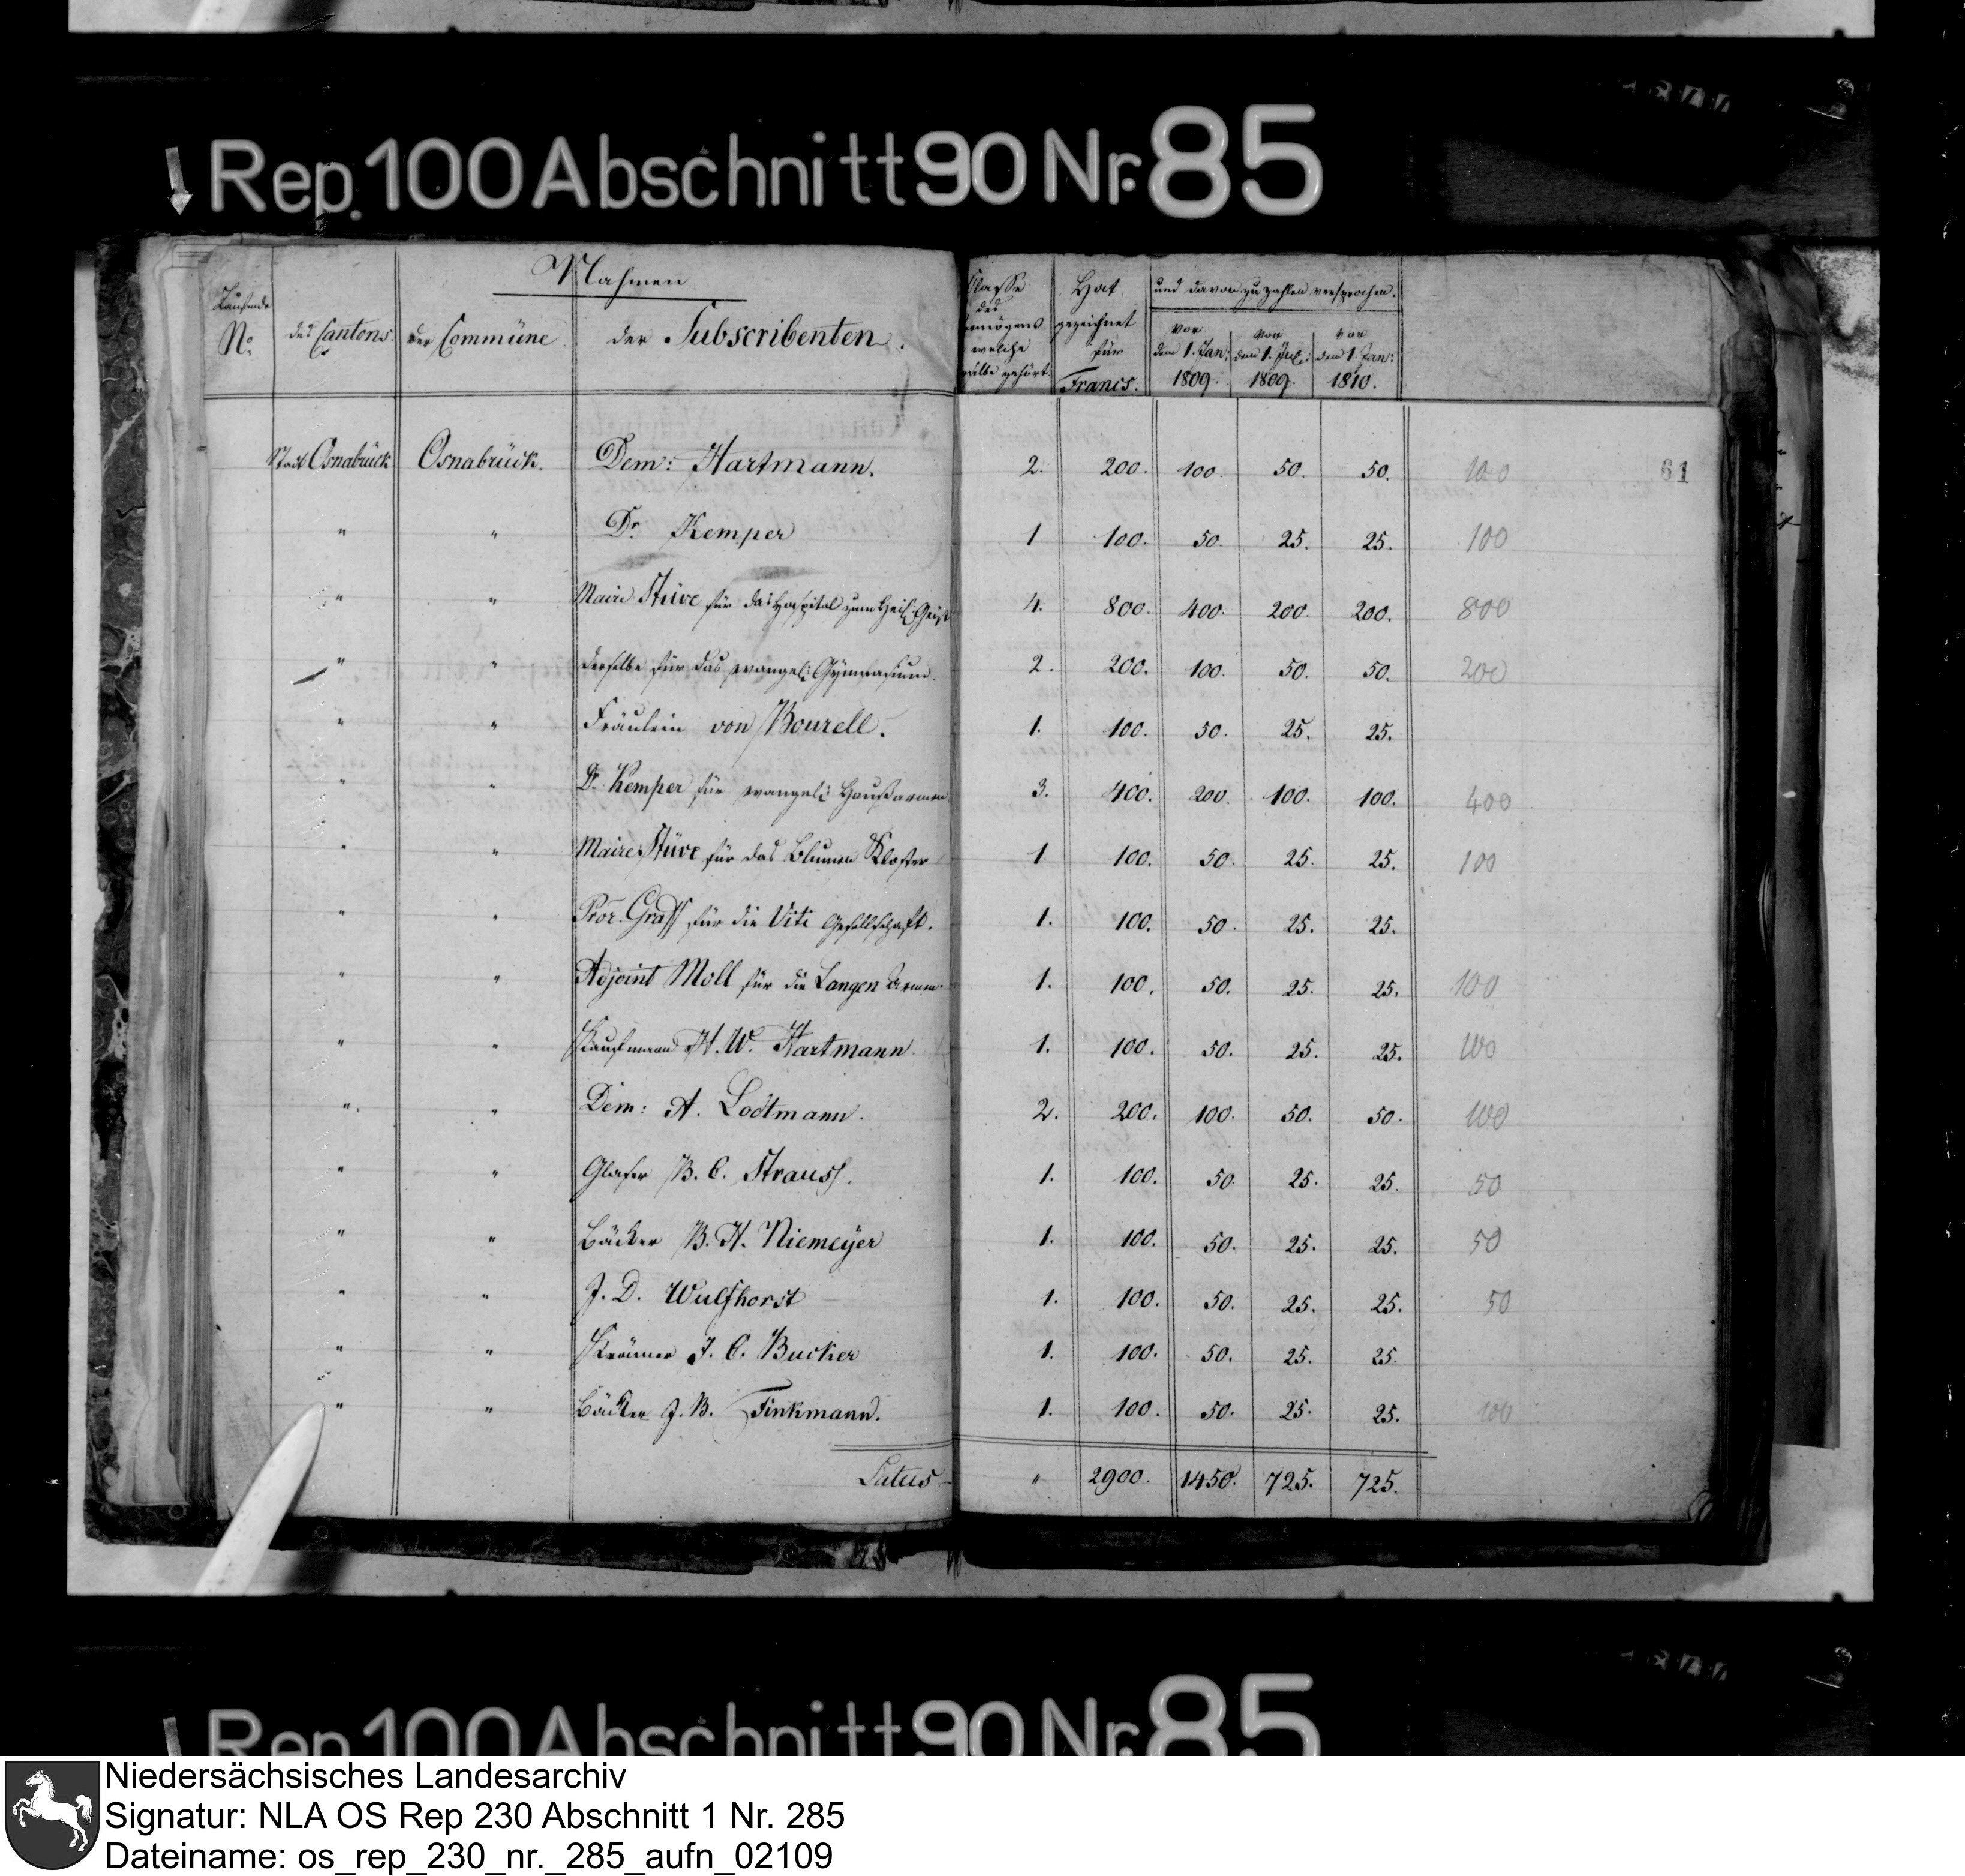 Rep. 100 Abschnitt 90 Nr. 85
Nahmen
Laufende No.
des Cantons.
der Commüne
der Subscribenten.
Classe des Vermögens welche derselbe gehört
Hat gezeichnet für Francs.
und davon zu zahlen versprochen.
vor dem 1. Jan: 1809.
von dem 1. Jul: 1809.
vor dem 1. Jan: 1810.
61
Stadt Osnabrück Osnabrück. Dem: Hartmann. 2. 200. 100. 50. 50. 100
" " Dr. Kemper 1 100. 50. 25. 25. 100
" " Maire Stüve für das Hospital zum Heil. Geist 4. 800. 400. 200. 200. 800
" " derselbe für das evangel: Gymnasium. 2. 200. 100. 50. 50. 200
" " Fräulein von Bourell. 1. 100. 50. 25. 25.
" " Dr. Kemper für evangel: Haußarmen 3. 400. 200. 100. 100. 400
" " Maire Stüve für das Blumen Kloster 1 100. 50. 25. 25. 100
" " Graff für die Viti Gesellschaft. 1. 100. 50. 25. 25.
" " Adjoint Moll für die Langen Armen 1. 100. 50. 25. 25. 100
" " Kaufmann H. W. Hartmann 1. 100. 50. 25. 25. 100
" " Dem: A. Lodtmann. 2. 200. 100. 50. 50. 100
" " Glaser B. C. Strauss. 1. 100. 50. 25. 25. 50
" " Bäcker B. H. Niemeyer 1. 100. 50. 25. 25. 50
" " J. D. Wulfhorst 1. 100. 50. 25. 25. 50
" " Krämer J. C. Bucker 1. 100. 50. 25. 25.
" " Bäcker J. B. Finkmann. 1. 100. 50. 25. 25. 100
Latus " 2900. 1450. 725. 725.
Rep. 100 Abschnitt 90 Nr. 85
Niedersächsisches Landesarchiv
Signatur: NLA OS Rep 230 Abschnitt 1 Nr. 285
Dateiname: os_rep_230_nr._285_aufn_02109